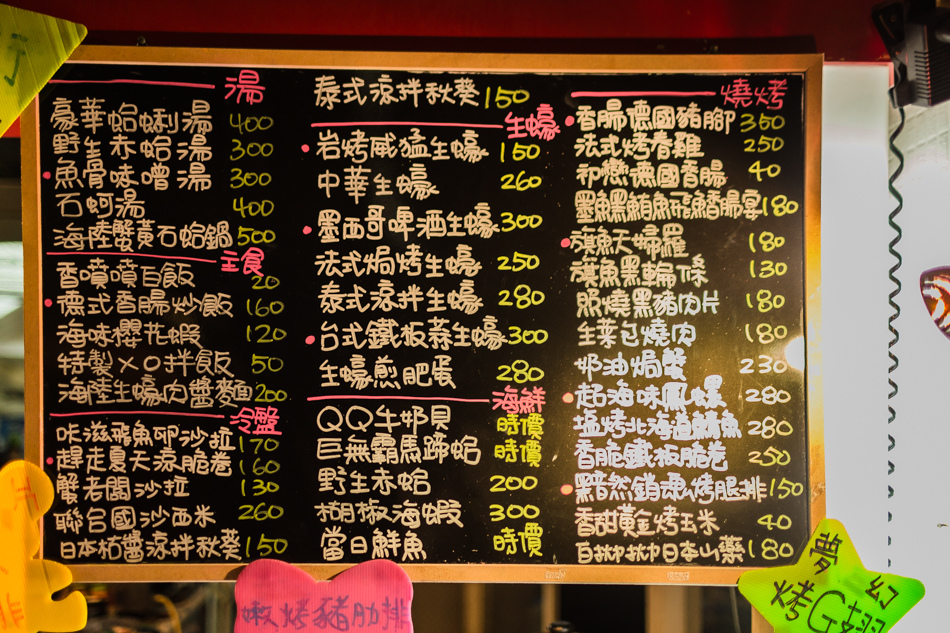 湯
豪華蛤蜊湯 400
野生赤蛤湯 300
魚骨味噌湯 300
石蚵湯 400
海陸蟹黃石蛤鍋 500
主食
香噴噴白飯 20
德式香腸炒飯 160
海味櫻花蝦 120
特製XO拌飯 50
海陸生蠔肉醬麵 200
冷盤
咔滋飛魚卵沙拉 170
趕走夏天涼脆卷 160
蟹老闆沙拉 130
聯合國沙西米 260
日本柚醬涼拌秋葵 150
泰式涼拌秋葵 150
生蠔
岩烤威猛生蠔 150
中華生蠔 260
墨西哥啤酒生蠔 300
法式焗烤生蠔 250
泰式涼拌生蠔 280
台式鐵板蒜生蠔 300
生蠔煎肥蛋 280
海鮮
QQ牛奶貝 時價
巨無霸馬蹄蛤 時價
野生赤蛤 200
胡椒海蝦 300
當日鮮魚 時價
燒烤
香腸德國豬腳 350
法式烤春雞 250
初戀德國香腸 40
墨魚黑鮪魚飛魚香腸宴 180
旗魚天婦羅 180
旗魚黑輪條 130
照燒黑豬肉片 180
生菜包燒肉 180
奶油焗蟹 230
起海味鳳螺 280
塩烤北海道鯖魚 280
香脆鐵板脆卷 250
黯然銷魂烤腿排 150
香甜黃金烤玉米 40
白拋拋日本山藥 180
嫩烤豬肋排
夢幻
烤G翅